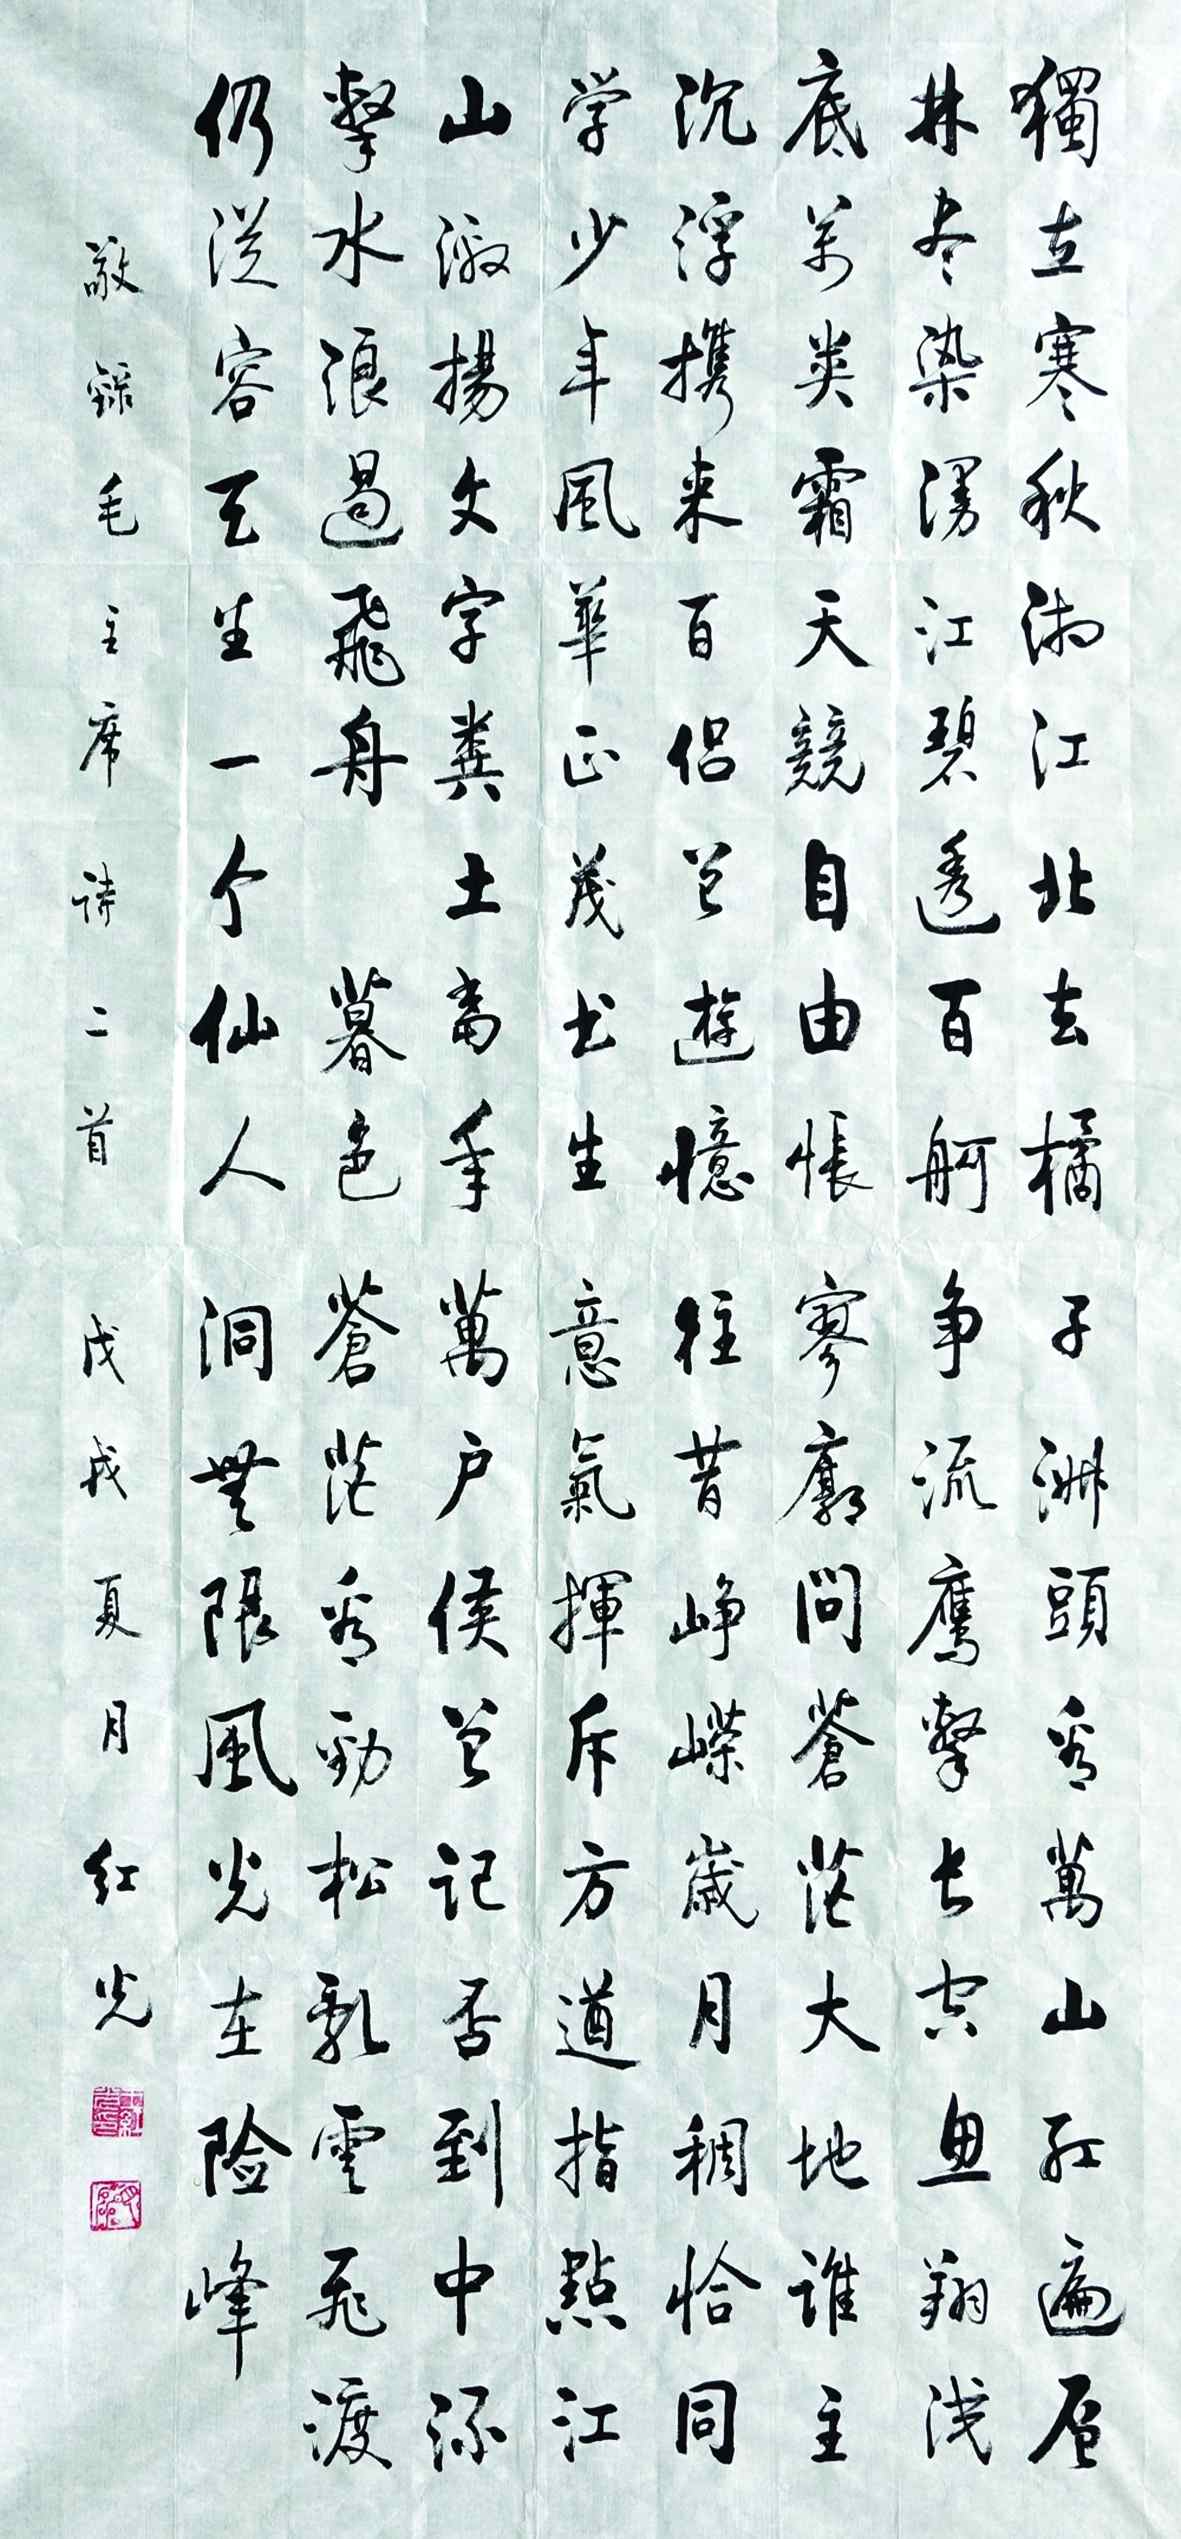 獨立寒秋湘江北去橘子洲頭看萬山紅遍层
林尽染漫江碧透百舸争流鹰擊长空鱼翔浅
底万类霜天競自由悵寥廓問蒼茫大地谁主
沉浮携来百侣曾遊憶往昔崢嶸歲月稠恰同
学少年風華正茂书生意氣揮斥方遒指點江
山激揚文字糞土当年萬户侯曾记否到中流
擊水浪遏飛舟 暮色蒼茫看勁松亂雲飛渡
仍從容天生一个仙人洞無限風光在险峰
敬錄毛主席詩二首 戊戌夏月红光